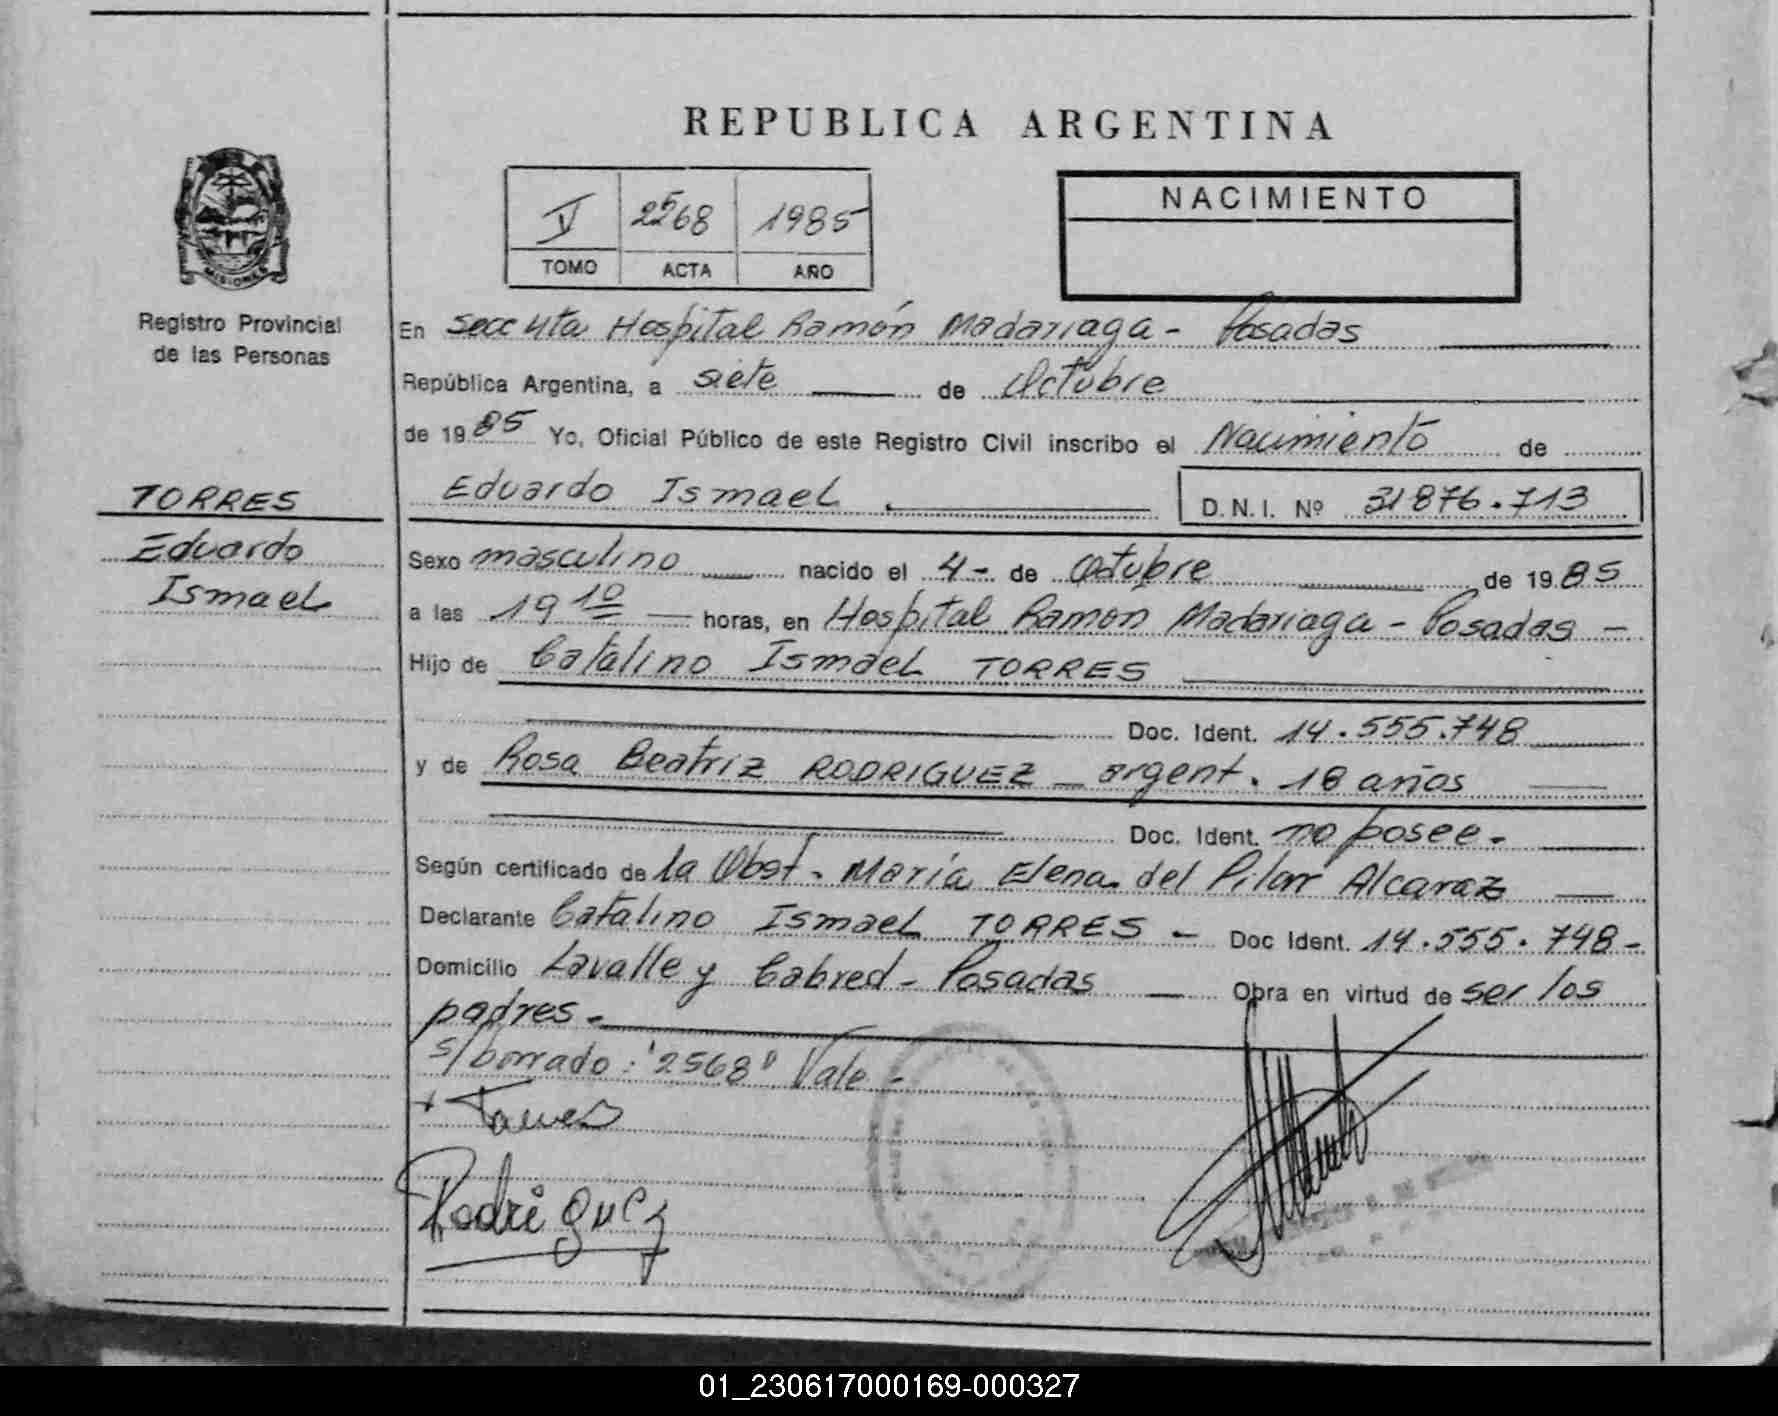 REPUBLICA ARGENTINA
V 2568 1985
TOMO ACTA AÑO
NACIMIENTO
MISIONES
Registro Provincial
de las Personas
TORRES
Eduardo
Ismael
En Secc 4ta Hospital Ramón Madariaga - Posadas
República Argentina, a siete de Octubre
de 1985 Yo, Oficial Público de este Registro Civil inscribo el Nacimiento de
Eduardo Ismael. D.N.I. Nº 31876.713
Sexo masculino nacido el 4- de Octubre de 1985
a las 19 10 horas, en Hospital Ramon Madariaga - Posadas -
Hijo de Catalino Ismael TORRES
Doc. Ident. 14.555.748
y de Rosa Beatriz RODRIGUEZ - argent. 18 años
Doc. Ident. no posee.
Según certificado de la Obst. María Elena del Pilar Alcaraz
Declarante Catalino Ismael TORRES - Doc Ident. 14.555.748-
Domicilio Lavalle y Cabred - Posadas Obra en virtud de ser los
padres.
s/borrado: "2568" Vale-
Rodriguez
01_230617000169-000327